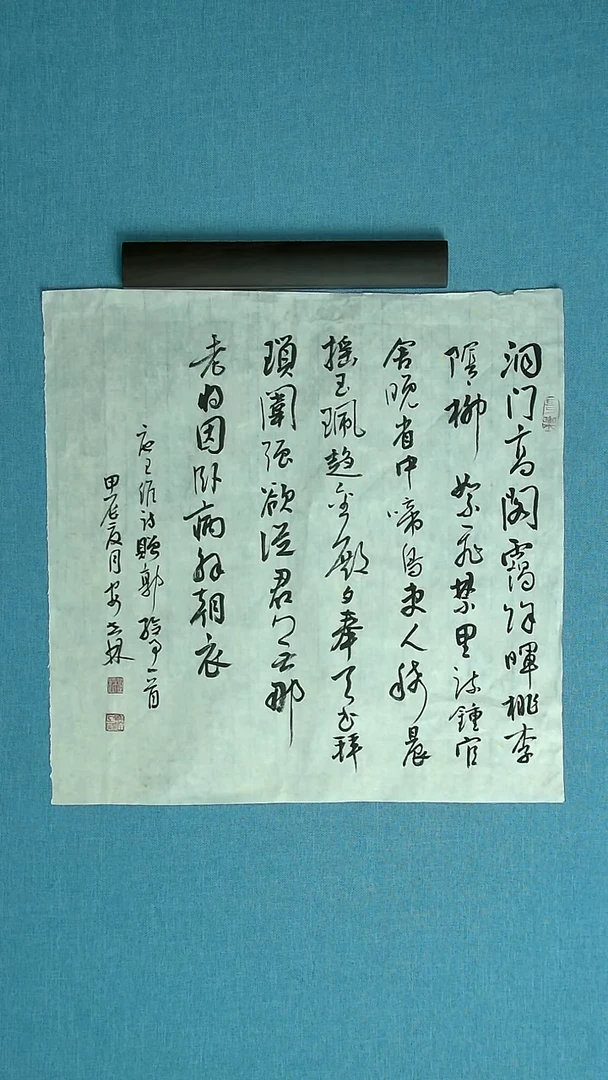 洞门高阁靄馀暉桃李
隂〻柳絮飞禁里疏鍾官
舍晚省中啼鳥吏人稀晨
摇玉珮趋金殿夕奉天书拜
瑣闈强欲從君无那
老将因卧病解朝衣
唐王维诗赠郭给事一首
甲辰夏月